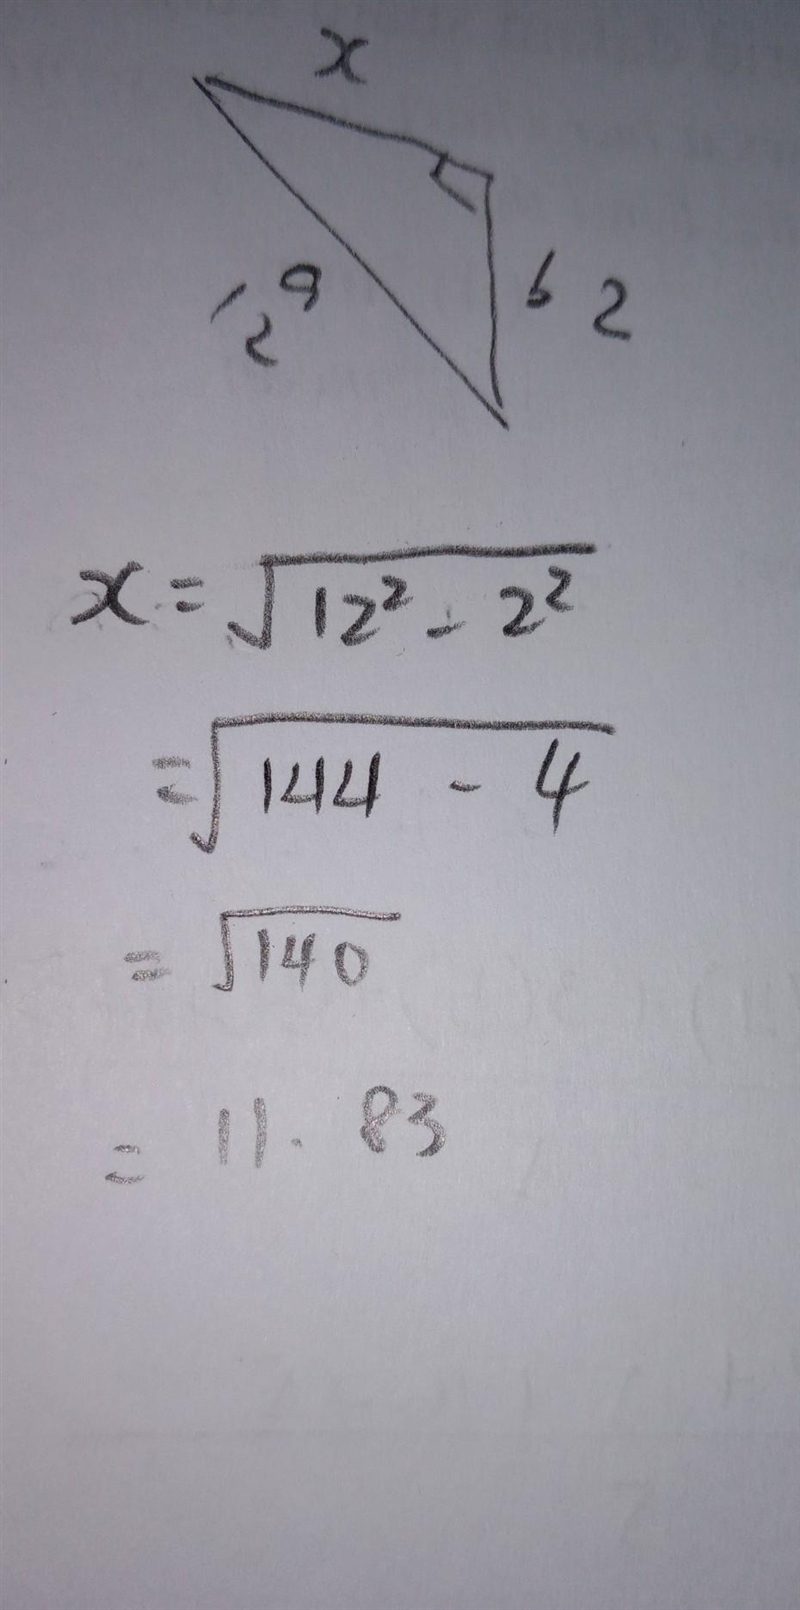 x
12 9
6 2
x = √12² - 2²
= √144 - 4
= √140
= 11.83